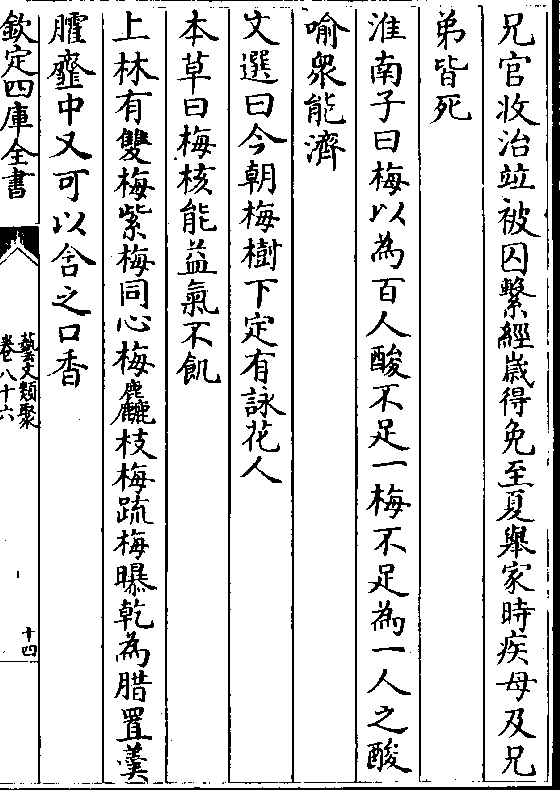 兄官收治竝被囚繫經嵗得免至夏舉家時疾母及兄
弟皆死
淮南子曰梅以為百人酸不足一梅不足為一人之酸
喻衆能濟
文選曰今朝梅樹下定有詠花人
本草曰梅核能益氣不飢
上林有雙梅紫梅同心梅麤枝梅䟽梅曝乾為腊置羹
臛虀中又可以含之口香
欽定四庫全書
藝文類聚
卷八十六
十四